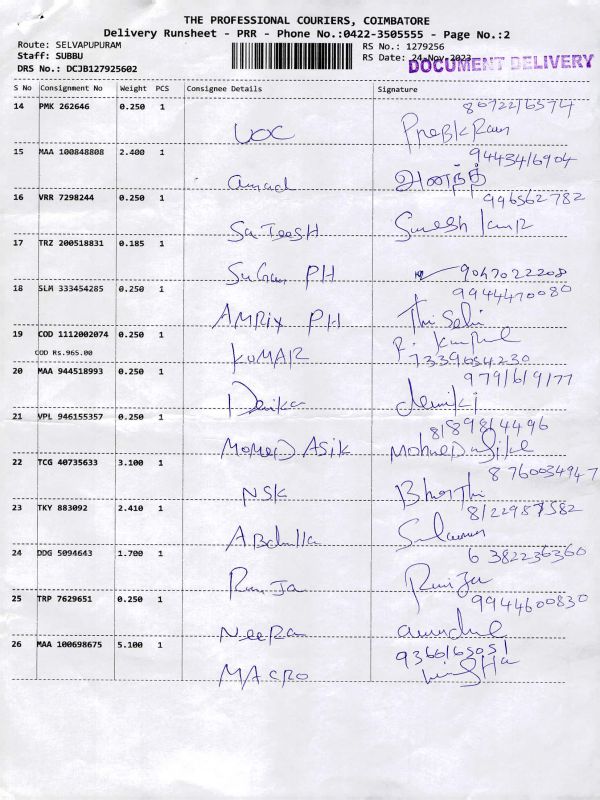 THE PROFESSIONAL COURIERS, COIMBATORE
Delivery Runsheet - PRR - Phone No.:0422-3505555 - Page No.:2
Route: SELVAPUPURAM
RS No.: 1279256
Staff: SUBBU
RS Date: 24-Nov-2023
DOCUMENT DELIVERY
DRS No.: DCJB127925602
S No Consignment No Weight PCS Consignee Details Signature
14 PMK 262646 0.250 1
UOC
15 MAA 100848808 2.400 1
9443416904
அனந்த்
16 VRR 7298244 0.250 1
996562782
SaTeesH Suresh
17 TRZ 200518831 0.185 1
Sugan PH 9047022208
18 SLM 333454285 0.250 1
9944470080
AMRix PH
19 COD 1112002074 0.250 1
COD Rs.965.00
KUMAR 7339654230
20 MAA 944518993 0.250 1
9791619177
21 VPL 946155357 0.250 1
8189814496
MOHMED ASIK
22 TCG 40735633 3.100 1
8760034947
NSK Bharthi
23 TKY 883092 2.410 1
8122987582
Abdulla
24 DDG 5094643 1.700 1
6382236360
25 TRP 7629651 0.250 1
9944600830
26 MAA 100698675 5.100 1
9366165051
MACRO